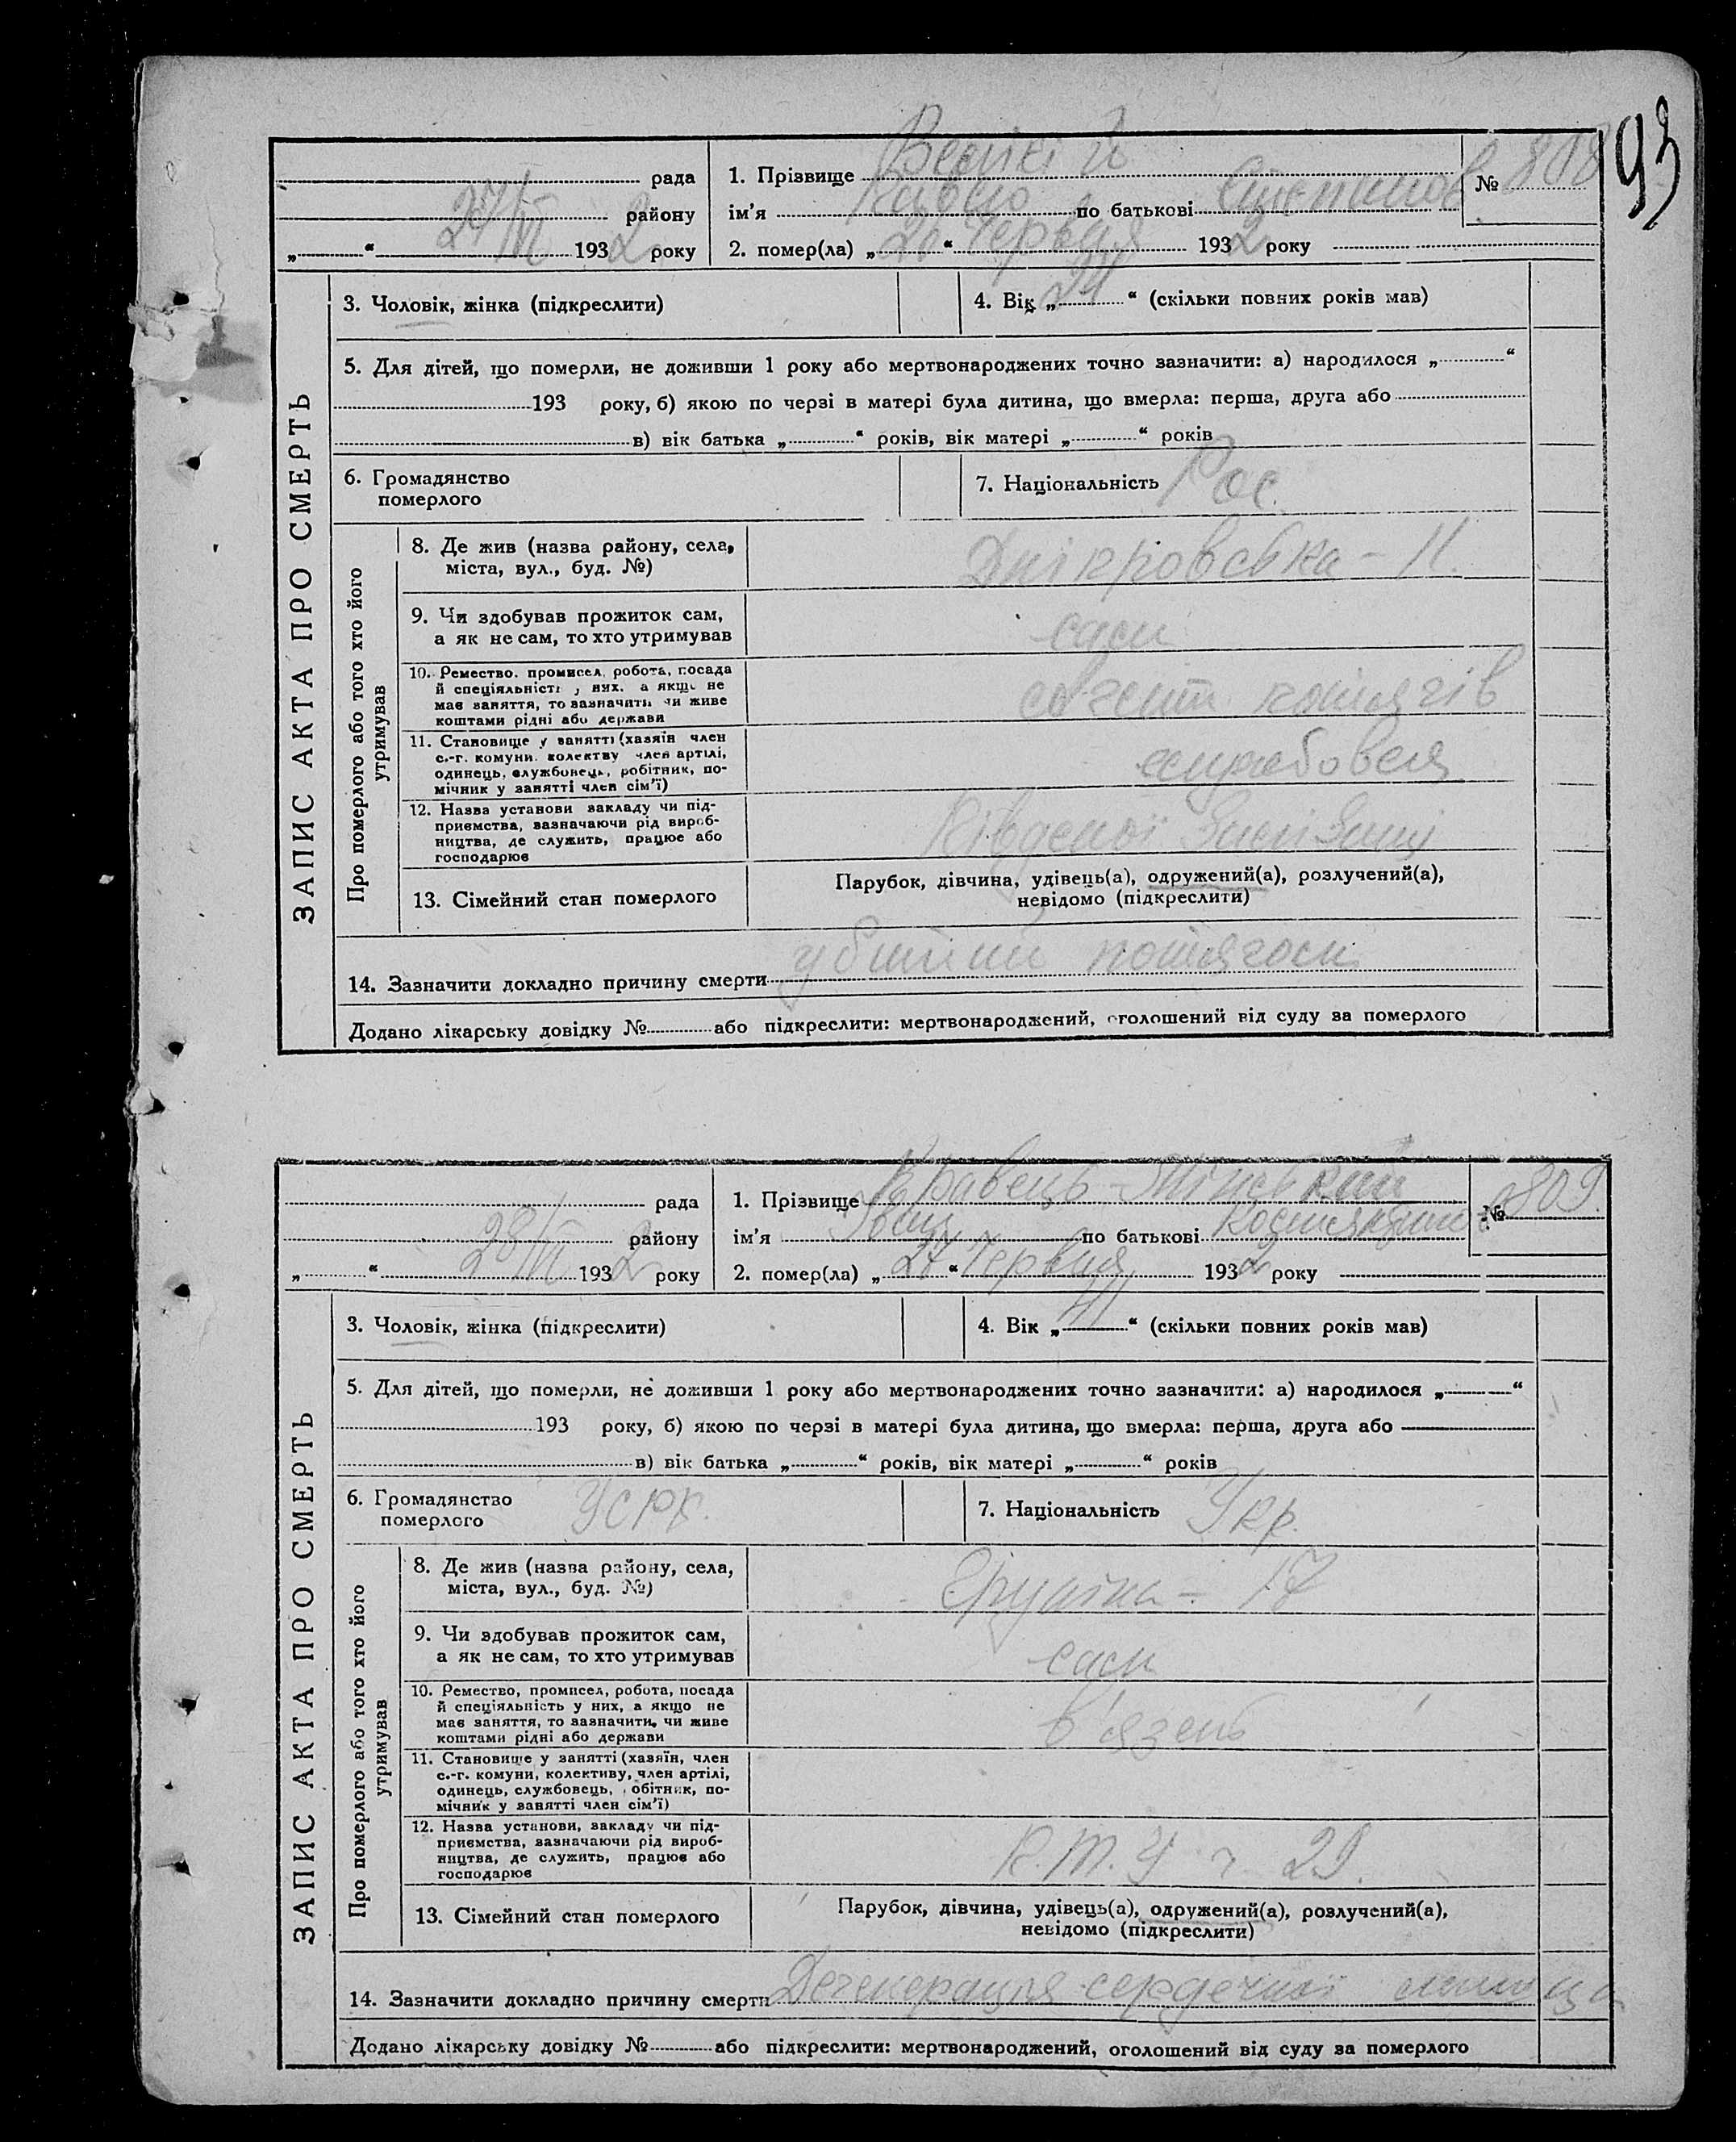 93
рада
району
27/VI 1932 року
1. Прізвище Великій
ім'я Павло по батькові Степанов.
№ 808
2. помер(ла) „26“ Червця 1932 року
ЗАПИС АКТА ПРО СМЕРТЬ
3. Чоловік, жінка (підкреслити)
4. Вік „24“ (скільки повних років мав)
5. Для дітей, що померли, не доживши 1 року або мертвонароджених точно зазначити: а) народилося „ “
193 року, б) якою по черзі в матері була дитина, що вмерла: перша, друга або
в) вік батька „ “ років, вік матері „ “ років
6. Громадянство
померлого
7. Національність Рос.
Про померлого або того хто його
утримував
8. Де жив (назва району, села,
міста, вул., буд. №)
Дніпровська - 11.
9. Чи здобував прожиток сам,
а як не сам, то хто утримував
сам
10. Ремество, промисел, робота, посада
й спеціяльність у них, а якщо не
має заняття, то зазначити чи живе
коштами рідні або держави
потягів
11. Становище у занятті (хазяїн член
с.-г. комуни, колективу член артілі,
одинець, службовець, робітник, по-
мічник у занятті член сім'ї)
службовець
12. Назва установи закладу чи під-
приємства, зазначаючи рід вироб-
ництва, де служить, працює або
господарює
Південої Залізниці
13. Сімейний стан померлого
Парубок, дівчина, удівець(а), одружений(а), розлучений(а),
невідомо (підкреслити)
14. Зазначити докладно причину смерти убитий потягом
Додано лікарську довідку № або підкреслити: мертвонароджений, оголошений від суду за померлого
рада
району
28/VI 1932 року
1. Прізвище Кравець-
ім'я Іван по батькові
№ 809.
2. помер(ла) „27“ Червця 1932 року
ЗАПИС АКТА ПРО СМЕРТЬ
3. Чоловік, жінка (підкреслити)
4. Вік „ “ (скільки повних років мав)
5. Для дітей, що померли, не доживши 1 року або мертвонароджених точно зазначити: а) народилося „ “
193 року, б) якою по черзі в матері була дитина, що вмерла: перша, друга або
в) вік батька „ “ років, вік матері „ “ років
6. Громадянство
померлого
УСРР.
7. Національність Укр.
Про померлого або того хто його
утримував
8. Де жив (назва району, села,
міста, вул., буд. №)
- 17
9. Чи здобував прожиток сам,
а як не сам, то хто утримував
сам
10. Ремество, промисел, робота, посада
й спеціяльність у них, а якщо не
має заняття, то зазначити, чи живе
коштами рідні або держави
в'язень
11. Становище у занятті (хазяїн, член
с.-г. комуни, колективу, член артілі,
одинець, службовець, робітник, по-
мічник у занятті член сім'ї)
12. Назва установи, закладу чи під-
приємства, зазначаючи рід вироб-
ництва, де служить, працює або
господарює
К.Т.У ч 29.
13. Сімейний стан померлого
Парубок, дівчина, удівець(а), одружений(а), розлучений(а),
невідомо (підкреслити)
14. Зазначити докладно причину смерти Дегенерація сердечної мишиці
Додано лікарську довідку № або підкреслити: мертвонароджений, оголошений від суду за померлого